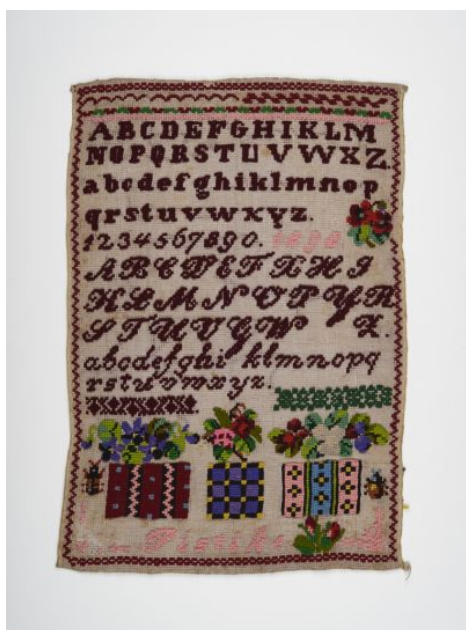 ABCDEFGHIKLM
NOPQRSTUVWXZ.
abcdefghiklmnop
qrstuvwxyz.
1234567890.
ABCDEFGHI
KLMNOPQR
STUVYW Z.
abcdefghi klmnopq
rstuvwxyz.